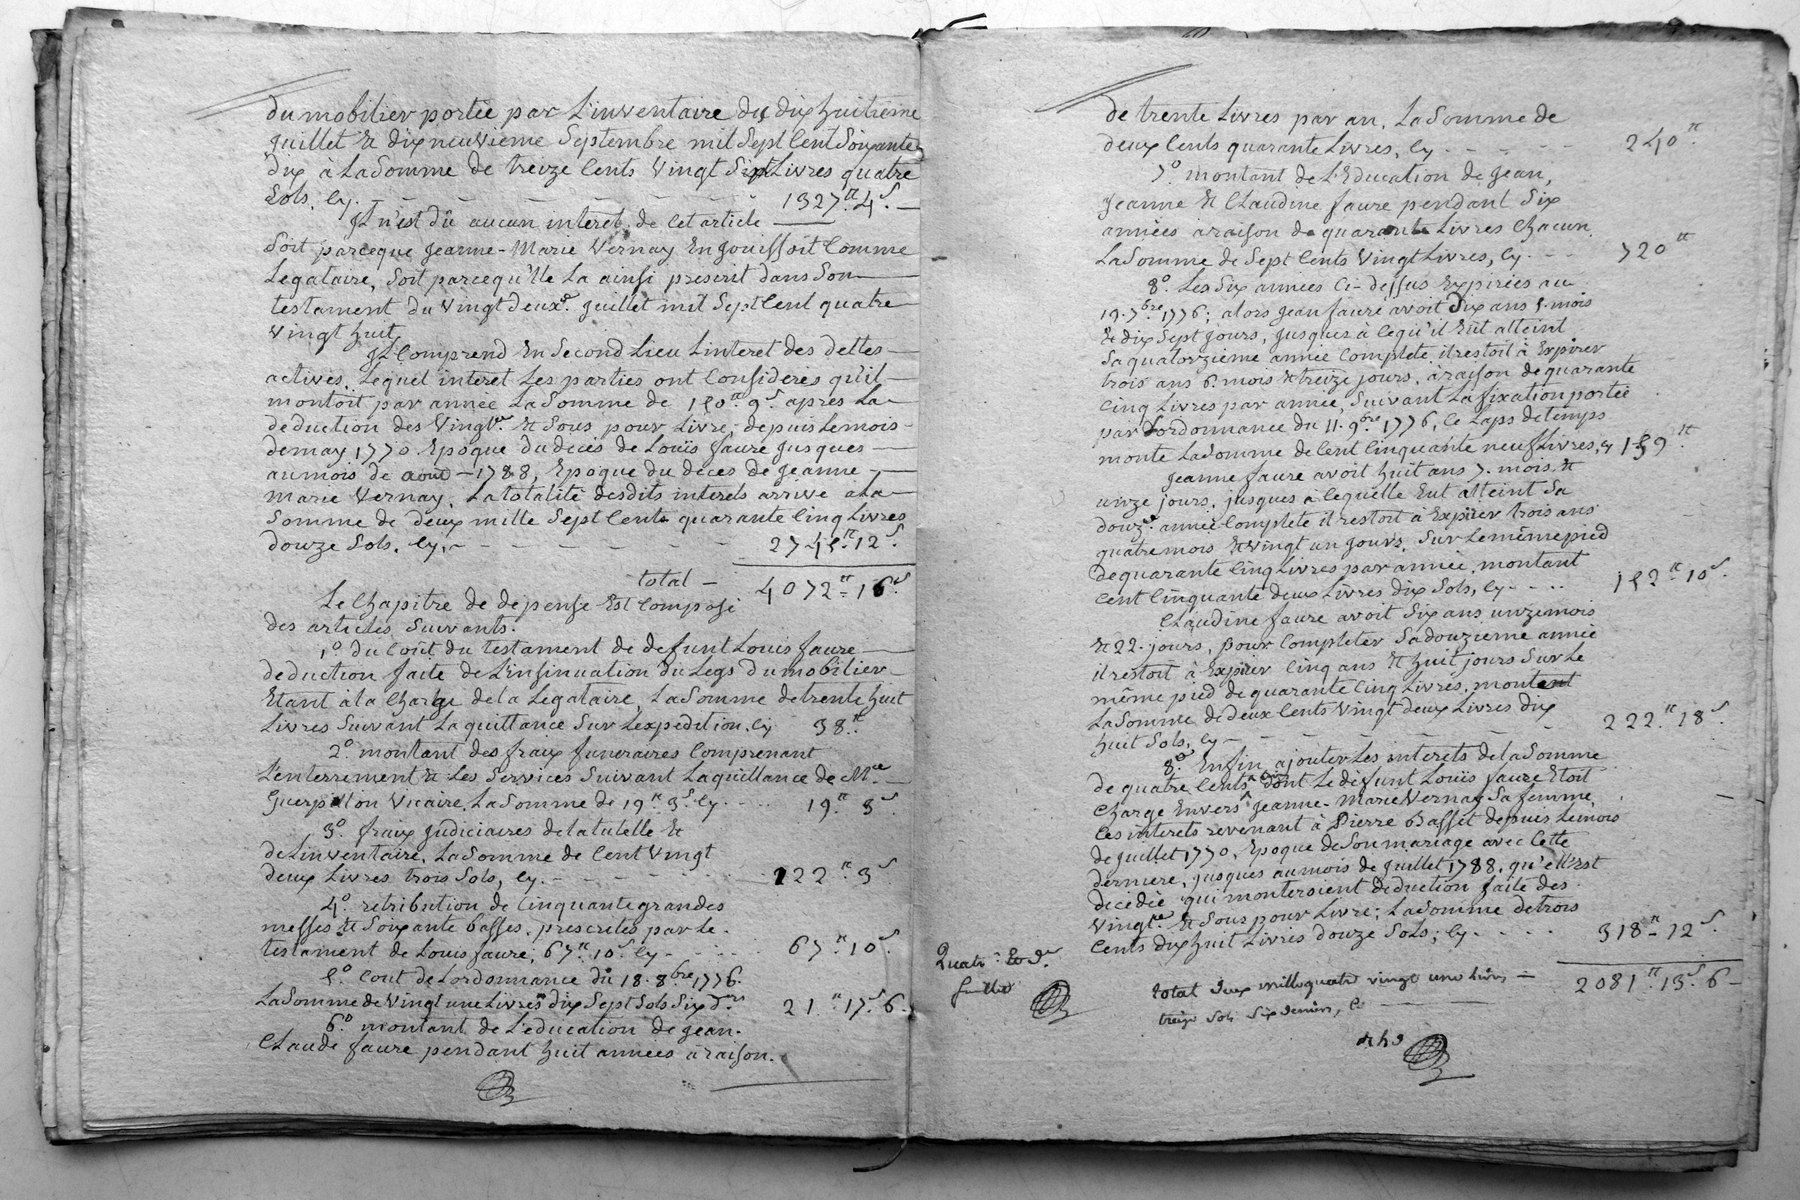 du mobilier portée par L'inventaire du dix huitieme
juillet & dix neuvieme Septembre mil Sept Cent Soixante
dix à La Somme de treize Cents Vingt Sept Livres quatre
Sols, Cy. - - - - - 1327.tt 4.s
Il n'est dû aucun interet de Cet article
Soit parceque Jeanne-Marie Vernay En jouissoit Comme
Legataire, Soit parcequ'Elle La ainsi prescrit dans Son
testament du Vingt Deuxe. juillet mil Sept Cent quatre
Vingt huit
Il Comprend En Second Lieu L'interet des dettes
actives, Lequel interet Les parties ont Considerés qu'il
montoit par année La Somme de 150.tt 9.s après La
deduction des Vingt.es & Sous pour Livre, depuis Le mois
de may 1770. Epoque du deces de Louïs faure jusques
au mois de aout - 1788, Epoque du deces de Jeanne
marie Vernay, La totalité desdits interets arrive a La
Somme de deux mille Sept Cents quarante Cinq Livres
douze Sols, Cy. - - - - - - 2745.tt 12.s
total - 4072.tt 16.s
Le Chapitre de depense Est Composé
des articles Suivants.
1.o du Coût du testament de defunt Louis faure
deduction faite de L'insinuation du Legs du mobilier
Etant à la Charge de la Legataire, La Somme de trente huit
Livres Suivant La quittance Sur L'expedition, Cy 38.tt
2.o montant des fraix funeraires Comprenant
L'enterrement & Les Services Suivant La quittance de M.re
Vicaire, La Somme de 19.tt 3.s Cy. - - - 19.tt 3.s
3.o fraix judiciaires de la tutelle &
de L'inventaire, La Somme de Cent Vingt
deux Livres trois Sols, Cy. - - - - - 122.tt 3.s
4.o retribution de Cinquante grandes
messes & Soixante basses, prescrites par Le
testament de Louis faure, 67.tt 10.s Cy - - - - 67.tt 10.s
5.o Cout de L'ordonnance du 18. 8.bre 1776.
La Somme de Vingt une Livres dix Sept Sols Six D.rs 21.tt 17.s 6.
6.o montant de L'education de jean-
Claude faure pendant huit années à raison
de trente Livres par an, La Somme de
deux Cents quarante Livres, Cy - - - - - 240.tt
7.o montant de L'Education de Jean,
Jeanne & Claudine faure pendant Six
années à raison de quarante Livres Chacun
La Somme de Sept Cents Vingt Livres, Cy. - - 720.tt
8.o Les Six années Ci-dessus Expirées au
19. 7.bre 1776; alors Jean faure avoit Dix ans 5. mois
& dix Sept jours, jusques à Cequ'il Eût atteint
Sa quatorzieme année Complete il restoit à Expirer
trois ans 6. mois & treize jours, à raison de quarante
Cinq Livres par année, Suivant La fixation portée
par L'ordonnance du 11. 9.bre 1776, Ce Laps de temps
monte La Somme de Cent Cinquante neuf Livres, Cy 159.tt
Jeanne faure avoit huit ans 7. mois &
unze jours, jusques à Cequ'elle Eut atteint Sa
douz.e année Complete il restoit à Expirer trois ans
quatre mois & Vingt un jours, Sur Le même pied
de quarante Cinq Livres par année, montant
Cent Cinquante deux Livres dix Sols, Cy - - - - 152.tt 10.s
Claudine faure avoit Six ans unze mois
& 22. jours, pour Completer Sa douzieme année
il restoit à Expirer Cinq ans & huit jours Sur Le
même pied de quarante Cinq Livres, montent
La Somme de Deux Cents Vingt deux Livres dix
huit Sols, Cy - - - - - - - 222.tt 18.s
8.o Enfin ajouter Les interets de la Somme
de quatre Cents dont Le defunt Louïs faure Etoit
Chargé Envers Jeanne-Marie Vernay Sa femme,
Ces interets revenant à Pierre Basset depuis Le mois
de juillet 1770, Epoque de Son mariage avec Cette
derniere, jusques au mois de juillet 1788, qu'elle Est
decedée qui monteroient deduction faite des
Vingt.es & Sous pour Livre; La Somme de trois
Cents dix huit Livres douze Sols, Cy - - - - 318.tt 12.s
total deux mille quatre vingt une Livres 2081.tt 13.s 6
treize Sols Six deniers, C
Quatr